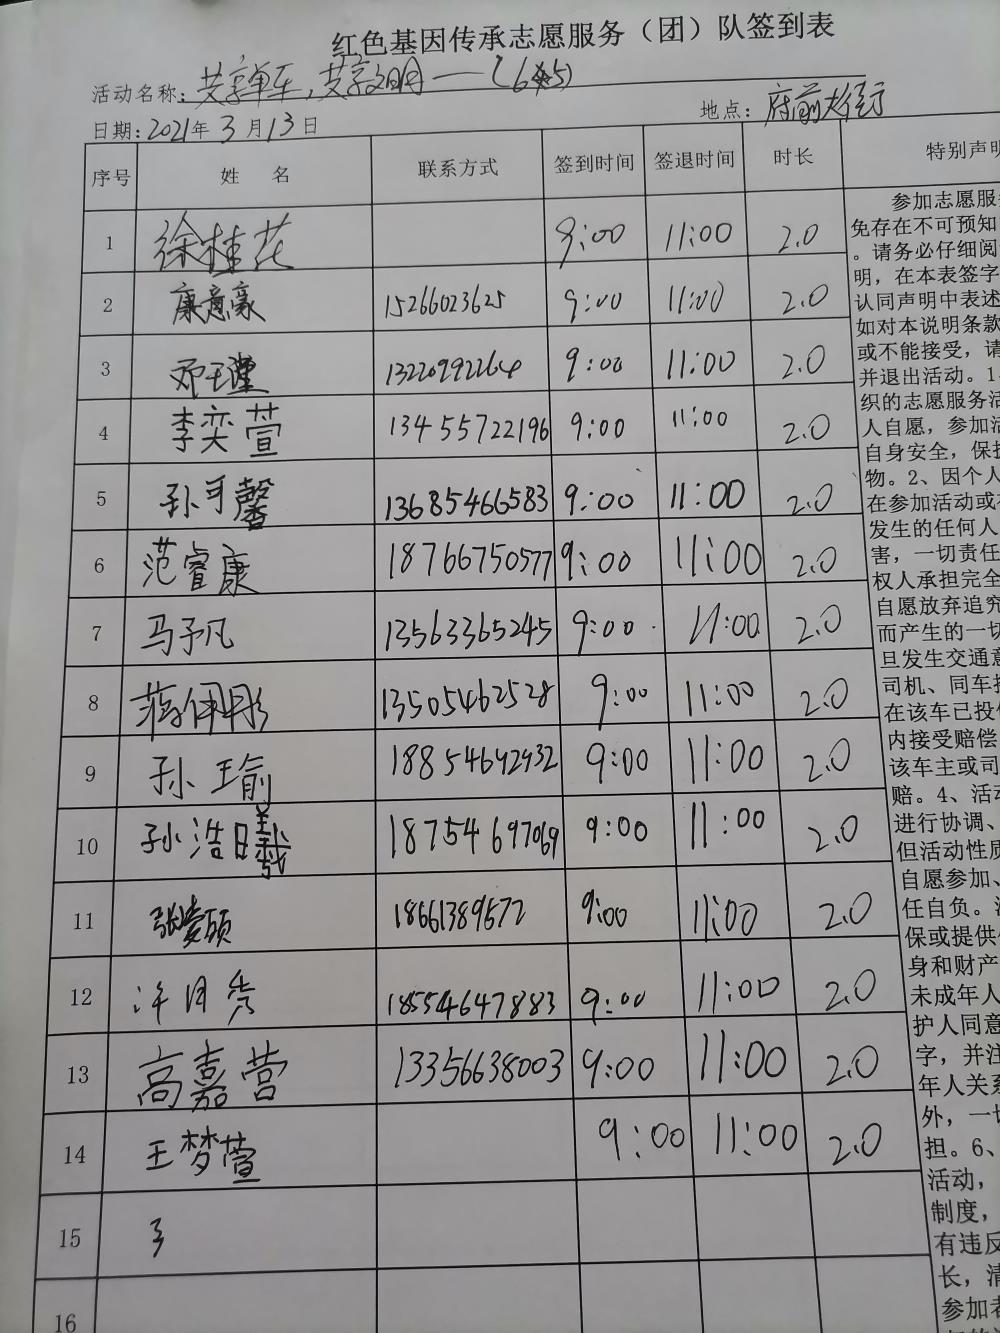 红色基因传承志愿服务（团）队签到表
活动名称：共享单车，共享文明一（6
日期：2021年3月13日
地点：府前大街
序号 姓 名 联系方式 签到时间 签退时间 时长 特别声明
1 徐桂花 9:00 11:00 2.0
2 康意豪 15266023625 9:00 11:00 2.0
3 邓王瑾 13220992264 9:00 11:00 2.0
4 李奕萱 13455722196 9:00 11:00 2.0
5 孙可馨 13685466583 9:00 11:00 2.0
6 范睿康 18766750577 9:00 11:00 2.0
7 马子凡 13563365245 9:00 11:00 2.0
8 蒋佩彤 13505462528 9:00 11:00 2.0
9 孙瑜 18854692932 9:00 11:00 2.0
10 孙浩曦 18754697069 9:00 11:00 2.0
11 张硕 18661389672 9:00 11:00 2.0
12 许月秀 18554647883 9:00 11:00 2.0
13 高嘉营 13356638003 9:00 11:00 2.0
14 王梦萱 9:00 11:00 2.0
15
16
参加志愿服
免存在不可预知
。请务必仔细阅
明，在本表签字
认同声明中表述
如对本说明条款
或不能接受，请
并退出活动。1
织的志愿服务活
人自愿，参加活
自身安全，保
物。2、因个人
在参加活动或
发生的任何人
害，一切责任
权人承担完全
自愿放弃追究
而产生的一切
旦发生交通意
司机、同车
在该车已投
内接受赔偿
该车主或司
赔。4、活动
进行协调、
但活动性质
自愿参加、
任自负。
保或提供
身和财产
未成年人
护人同意
字，并注
年人关系
外，一切
担。6、
活动，
制度，
有违反
长，清
参加者